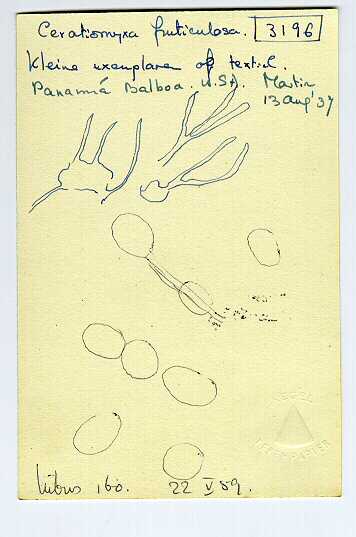 Ceratiomyxa fruticulosa. 3196
Kleine exemplaren op textiel.
Panamá Balboa. U.S.A. Martin
13 aug '37
160.
22 V 89.